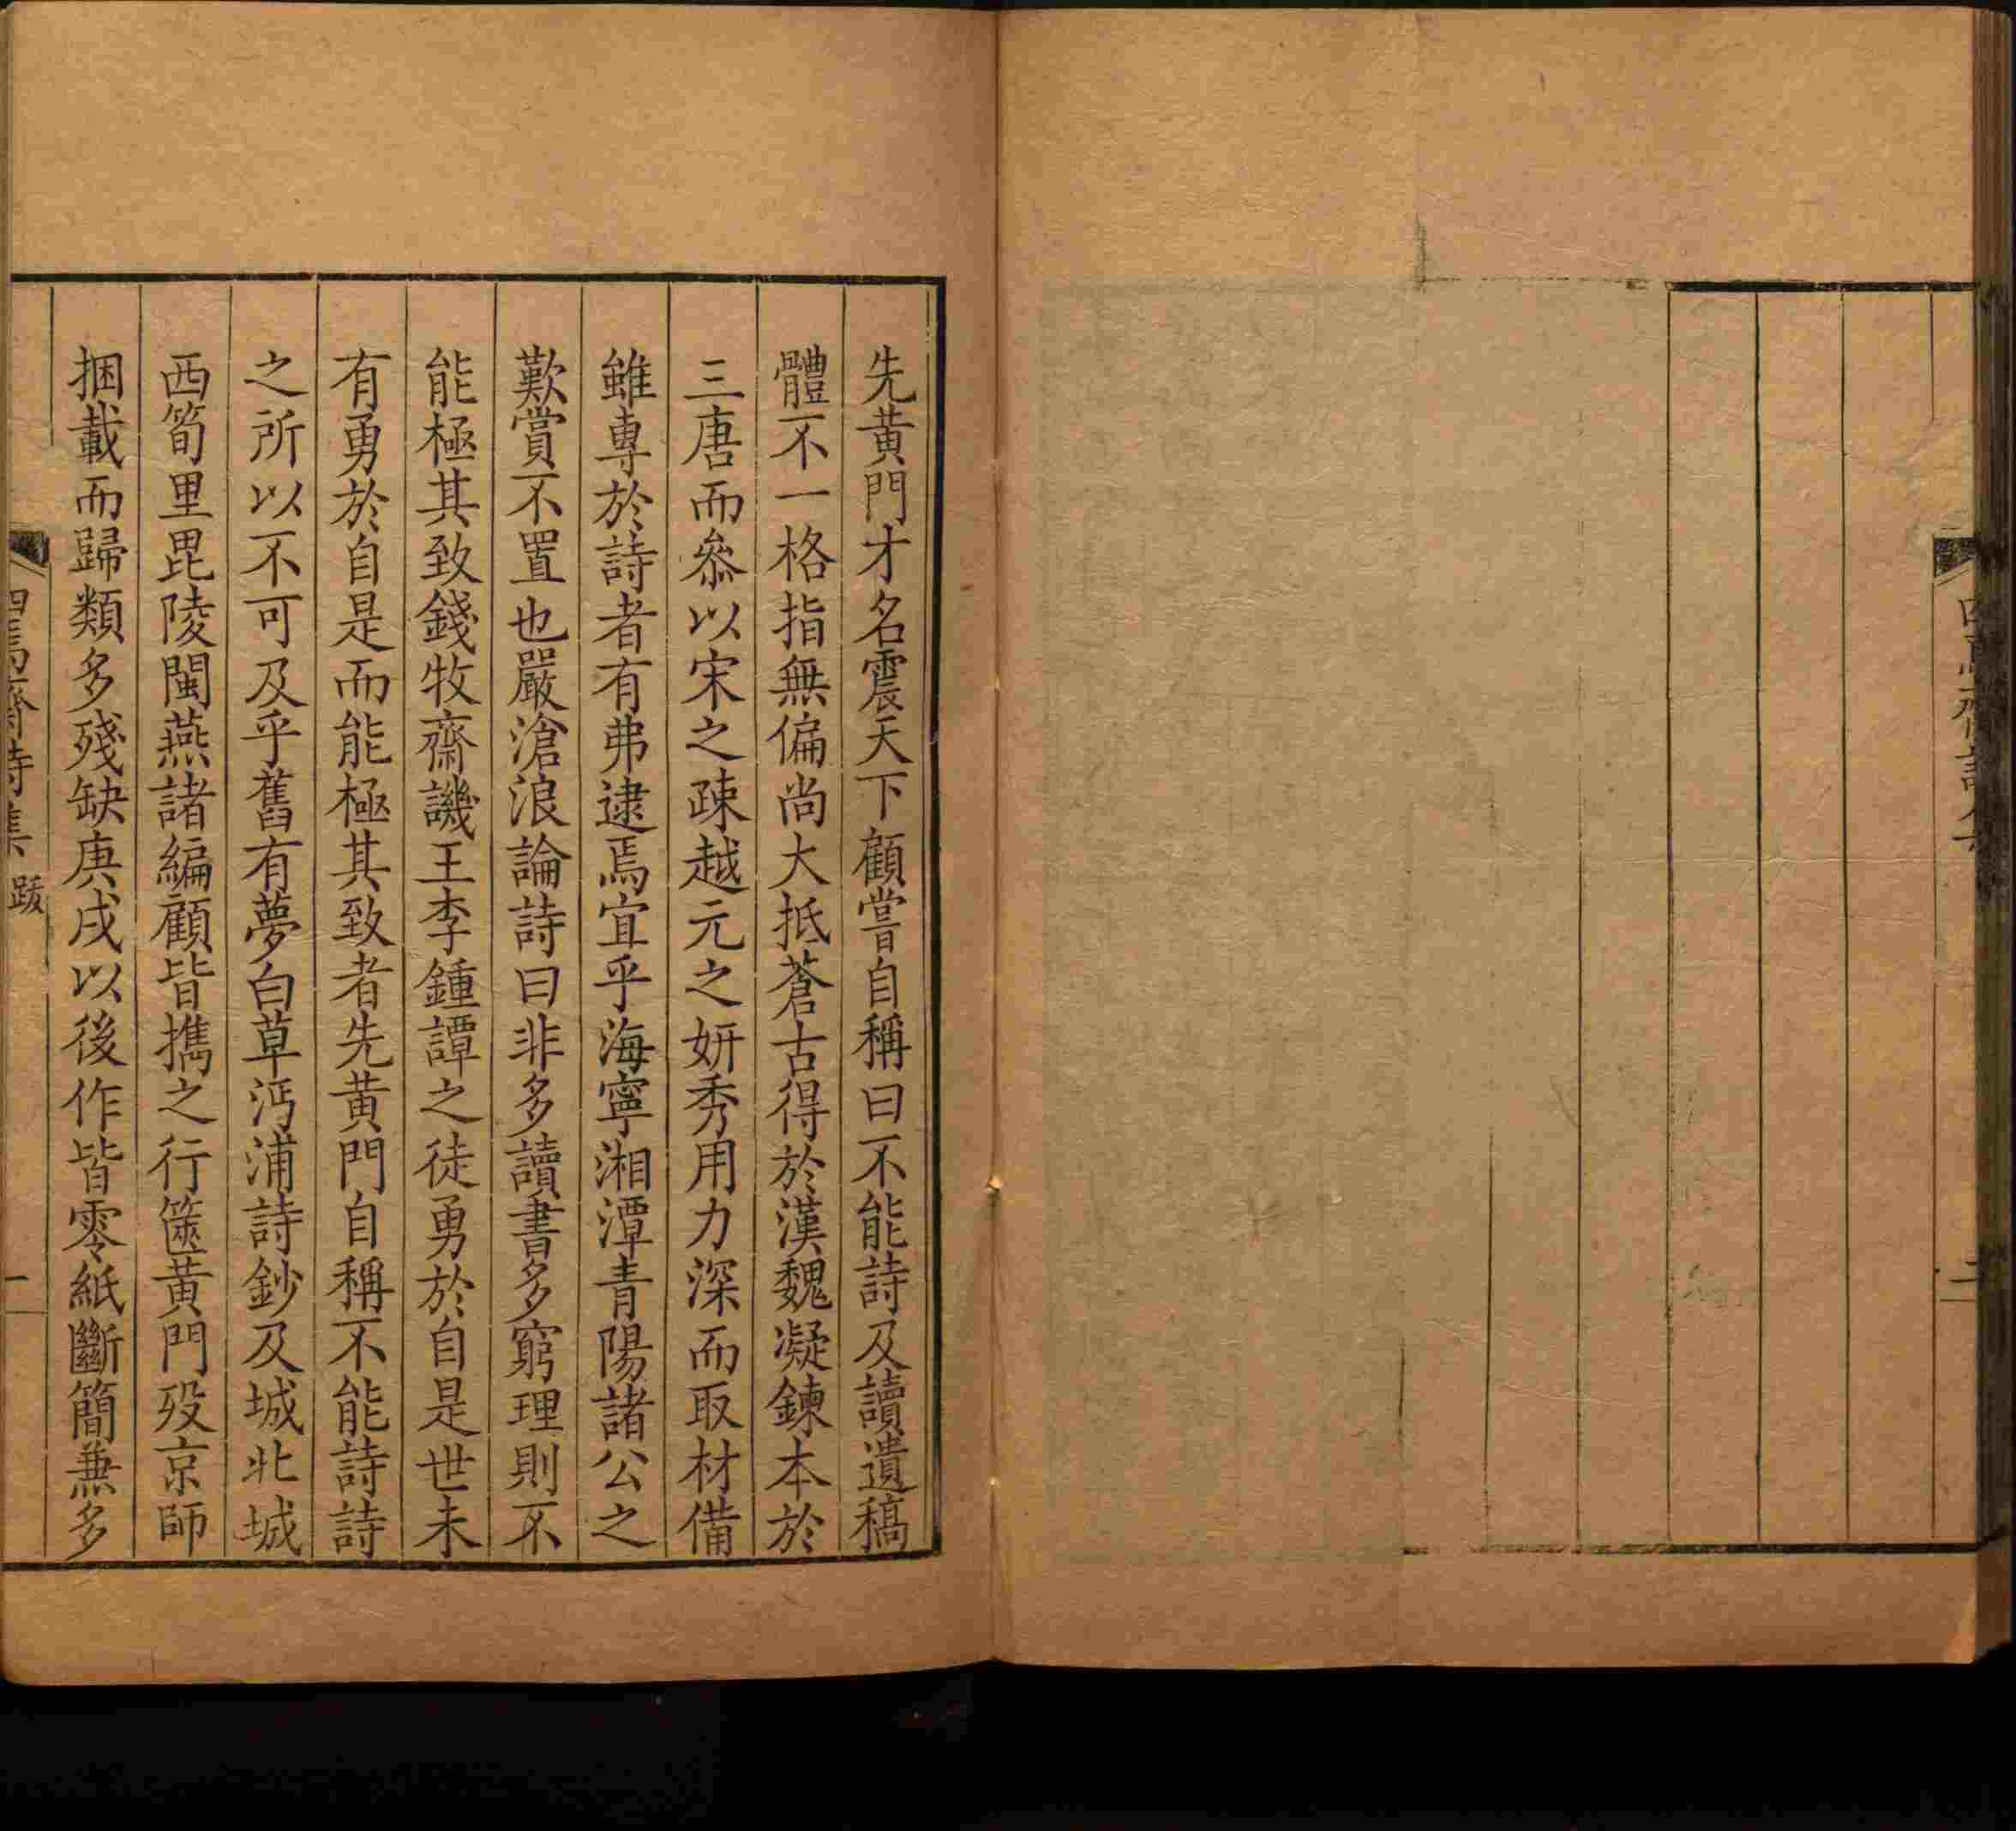 二
先黄門才名震天下顧嘗自稱曰不能詩及讀遺稿
體不一格指無偏尚大抵蒼古得於漢魏凝鍊本於
三唐而叅以宋之疎越元之妍秀用力深而取材備
雖專於詩者有弗逮焉宜乎海寧湘潭青陽諸公之
歎賞不置也嚴滄浪論詩曰非多讀書多窮理則不
能極其致錢牧齋譏王李鍾譚之徒勇於自是世未
有勇於自是而能極其致者先黄門自稱不能詩詩
之所以不可及乎舊有夢白草沔浦詩鈔及城北城
西筍里毘陵閩燕諸編顧皆攜之行篋黄門殁京師
捆載而歸類多殘缺庚戌以後作皆零紙斷簡兼多
四焉齋詩集 跋 一